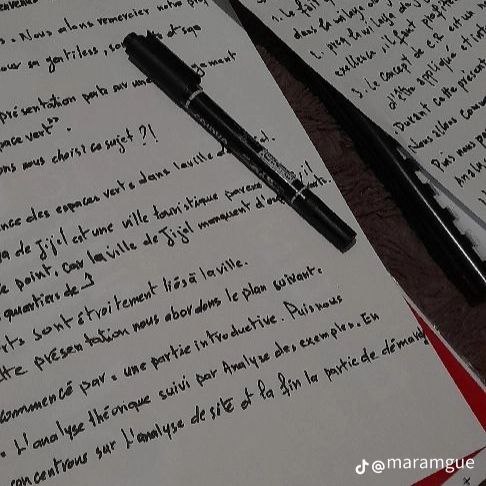 . Nous allons remercier notre pro
our sa gentiless, so
présentation porte sur un
pace vert"
ons nous choisi ce sujet ?!
nce des espaces verts dans la ville d
ya de Jijel est une ville touristique par
ce point, Car la ville de Jijel manquent d'
quartier de
rts sont étroitement liés à la ville.
tte présentation nous abordons le plan suivant:
commencé par: une partie introductive. Puis nous
L'analyse théorique suivi par Analyse des exemples. En
concentrons sur l'analyse de site et la fin la partie de démar
1. Le fait
dans la
2.
excellence, il faut
3. Le Concept de C.R est un
d'être appliqué et int
Durant cette présent
Nous allons comm
Puis nous pa
Analy
@maramgue